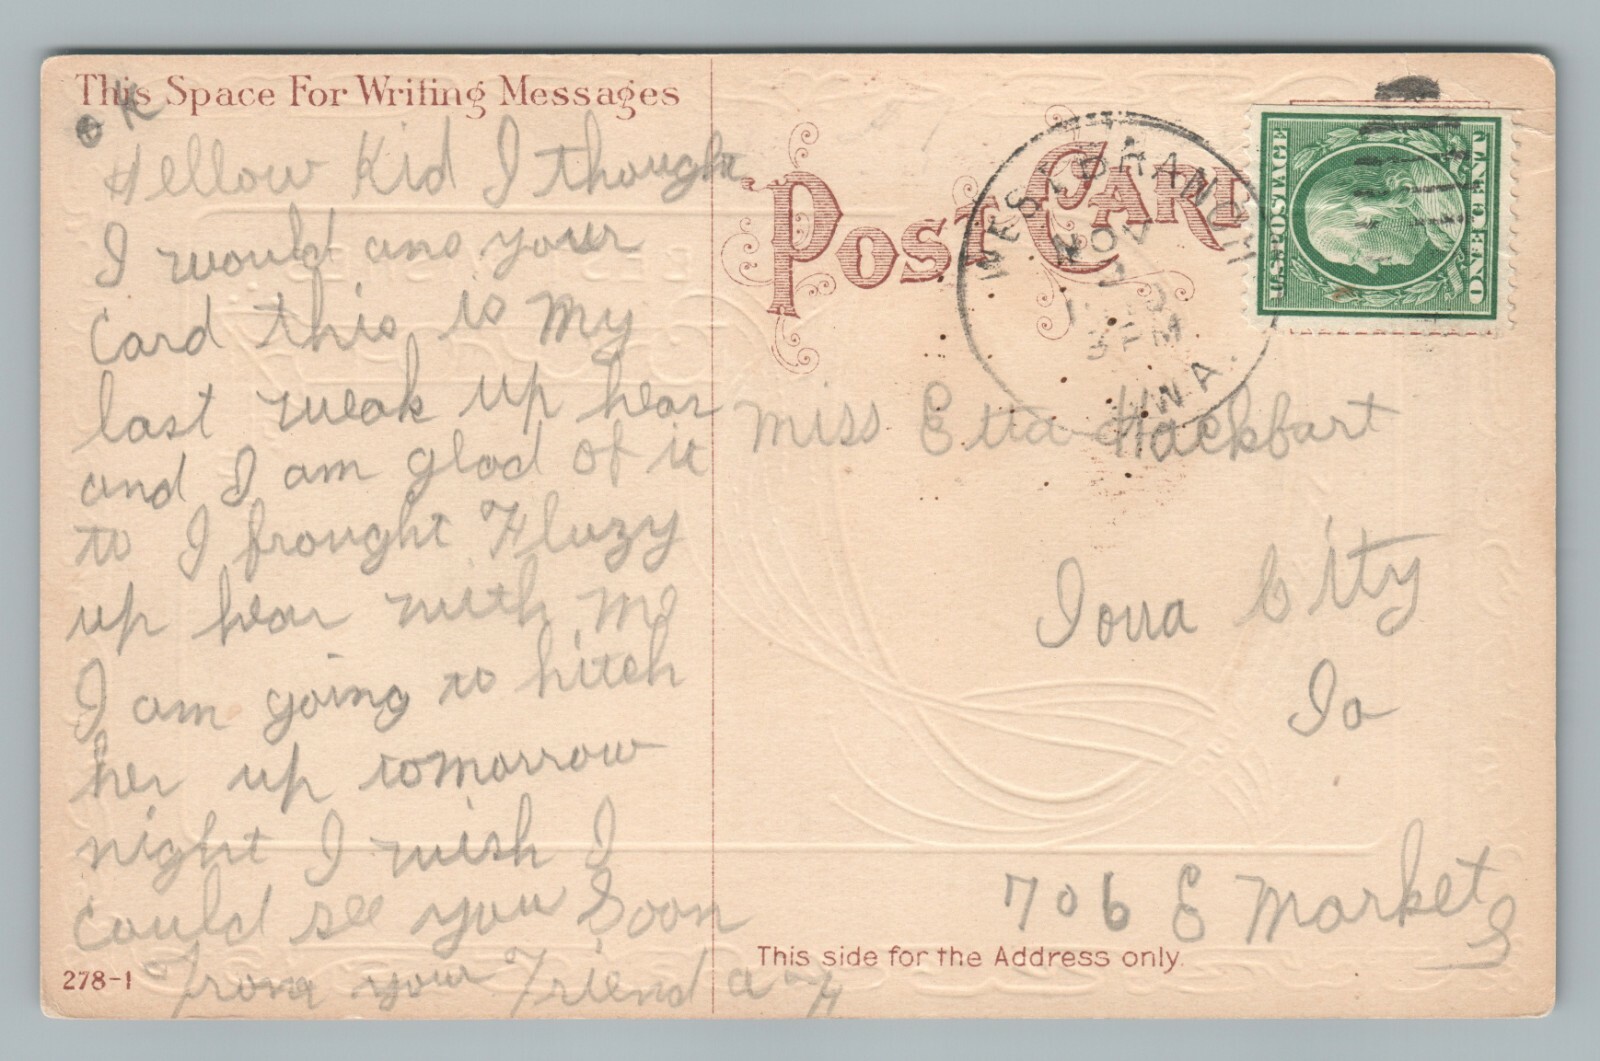 This Space For Writing Messages
OK
Hellow Kid I thought
I would ans your
Card this is my
last weak up hear
and I am glad of it
to I brought Fluzy
up hear with me
I am going to hitch
her up tomorrow
night I wish I
Could see you Soon
From your Friend
278-1
POST CARD
WEST BRANCH
NOV
1
3 PM
IOWA
U.S. POSTAGE
ONE CENT
Miss Etta Hackbart
Iowa City
Ia
706 E Market
S
This side for the Address only.